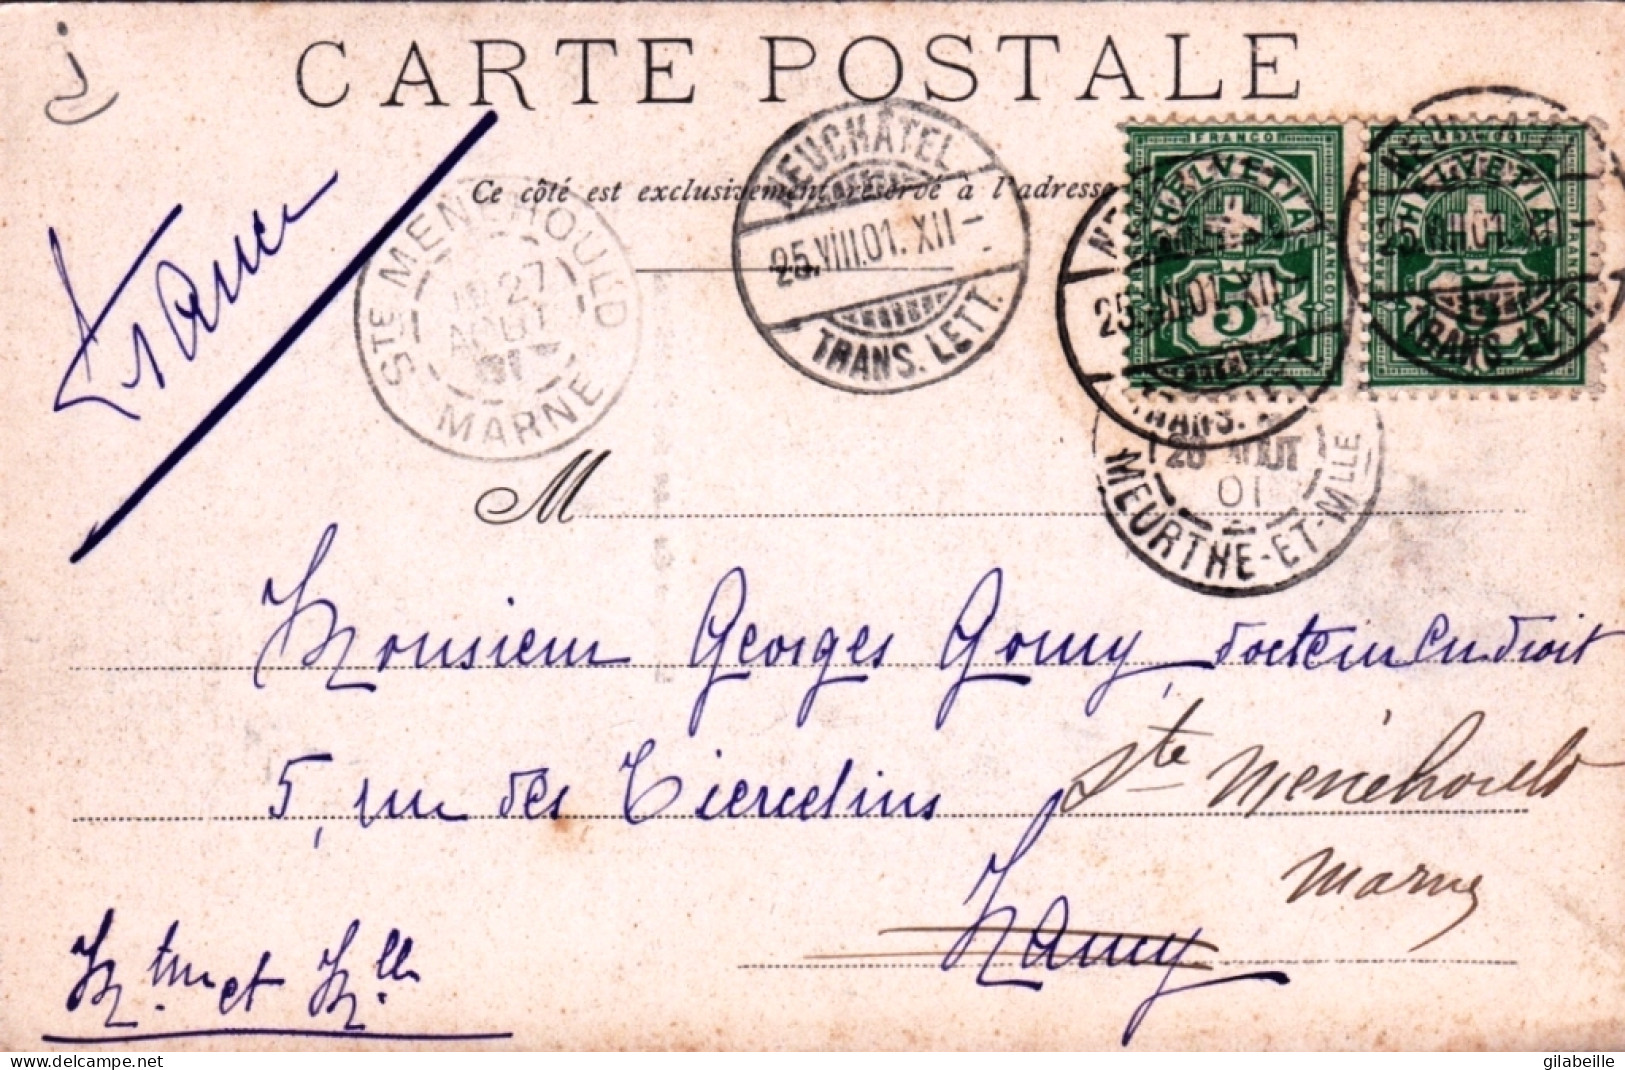 CARTE POSTALE
Ce côté est exclusivement réservé à l'adresse
France
STE MENEHOULD
27
AOUT
01
MARNE
NEUCHÂTEL
25.VIII.01. XII-
TRANS. LETT.
FRANCO
HELVETIA
5
FRANCO
25.VIII.01. XII
TRANS.
NEUCHÂTEL
HELVETIA
5
FRANCO
25.VIII.01. XII
TRANS. LETT.
26 AOUT
01
MEURTHE-ET-MLLE
M
Monsieur Georges Gomy, docteur en droit
5, rue des Tiercelins
Ste Menehould
Marne
Nancy
Mme et Mlle
gilabeille